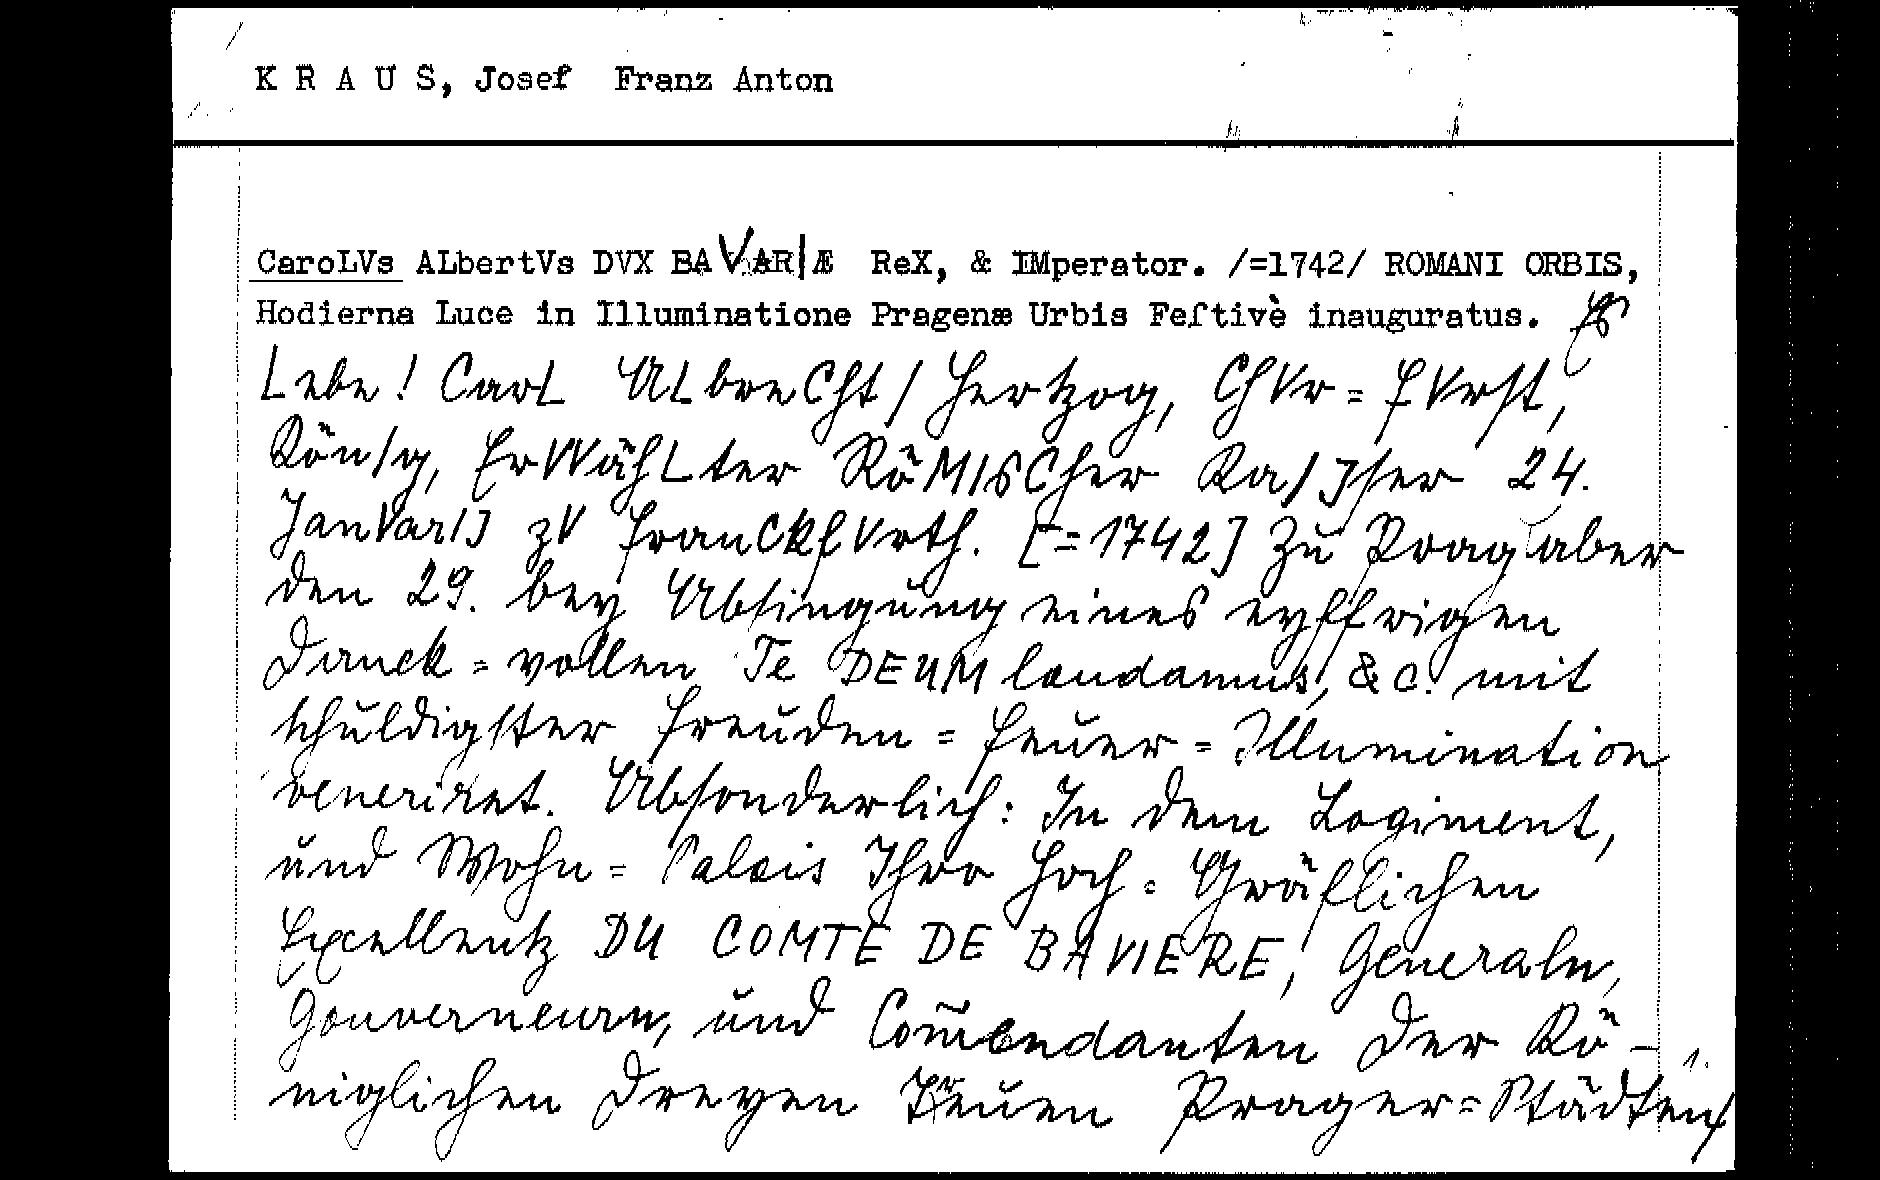 K R A U S, Josef Franz Anton
CaroLVs ALbertVs DVX BAVARIÆ ReX, & IMperator. /=1742/ ROMANI ORBIS,
Hodierna Luce in Illuminatione Pragenæ Urbis Feſtivè inauguratus. Es
Lebe! CarL ALbreCht / Hertzog, ChVr=fVrst,
KönIg, ErWähLter RöMIsCher KaIJser 24.
JanVarIJ zV franCkfVrth. [=1742] Zu Prag aber
den 29. bey Absingung eines eyffrigen
Danck=vollen Te DEUM laudamus, &c. mit
schuldigster Freuden=Feuer=Illumination
veneriret. Absonderlich: In dem Logiment,
und Wohn=Palais Ihro Hoch=Gräflichen
Excellentz DU COMTE DE BAVIERE, Generaln,
Gouverneurn, und Com̄endanten der Kö-
niglichen dreyen Treuen Prager=Städten/